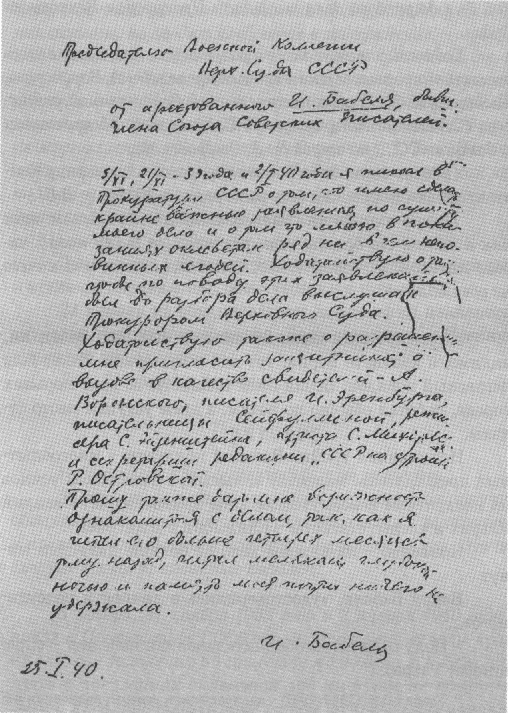 Председателю Военной Коллегии
Верх. Суда СССР
от арестованного И. Бабеля, бывш.
члена Союза Советских Писателей.
5/XI, 21/XI - 39 года и 2/I 40 года я писал в
Прокуратуру СССР о том, что имею сделать
крайне важные заявления по существу
моего дела и о том что мною в пока-
заниях оклеветан ряд ни в чем непо-
винных людей. Ходатайствую о том,
чтобы по поводу этих заявлений я
был до разбора дела выслушан
Прокурором Верховного Суда.
Ходатайствую также о разрешении
мне пригласить защитника; о
вызове в качестве свидетелей - А.
Воронского, писателя И. Эренбурга,
писательницы Сейфуллиной, режис-
сера С. Эйзенштейна, артиста С. Михоэлса
и секретаря редакции „СССР на стройке"
Р. Островской.
Прошу также дать мне возможность
ознакомиться с делом, так как я
читал его больше четырех месяцев
тому назад, читал мельком, глубокой
ночью и память моя почти ничего не
удержала.
И. Бабель
25.I.40.